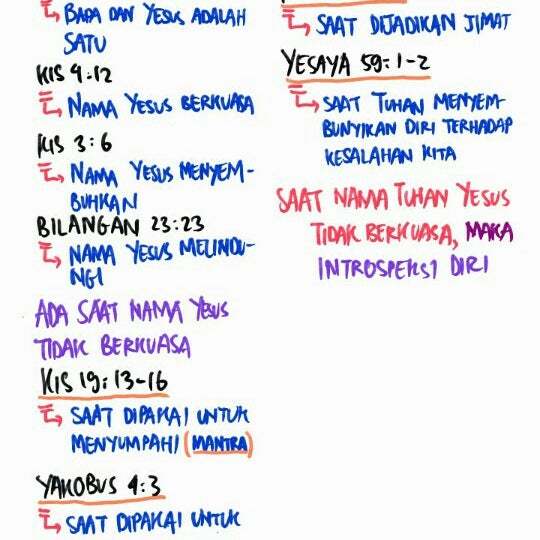 BAPA DAN YESUS ADALAH
SATU
KIS 4:12
NAMA YESUS BERKUASA
KIS 3:6
NAMA YESUS MENYEM-
BUHKAN
BILANGAN 23:23
NAMA YESUS MELINDU-
NGI
ADA SAAT NAMA YESUS
TIDAK BERKUASA
KIS 19:13-16
SAAT DIPAKAI UNTUK
MENYUMPAHI (MANTRA)
YAKOBUS 4:3
SAAT DIPAKAI UNTUK
SAAT DIJADIKAN JIMAT
YESAYA 59:1-2
SAAT TUHAN MENYEM-
BUNYIKAN DIRI TERHADAP
KESALAHAN KITA
SAAT NAMA TUHAN YESUS
TIDAK BERKUASA, MAKA
INTROSPEKSI DIRI